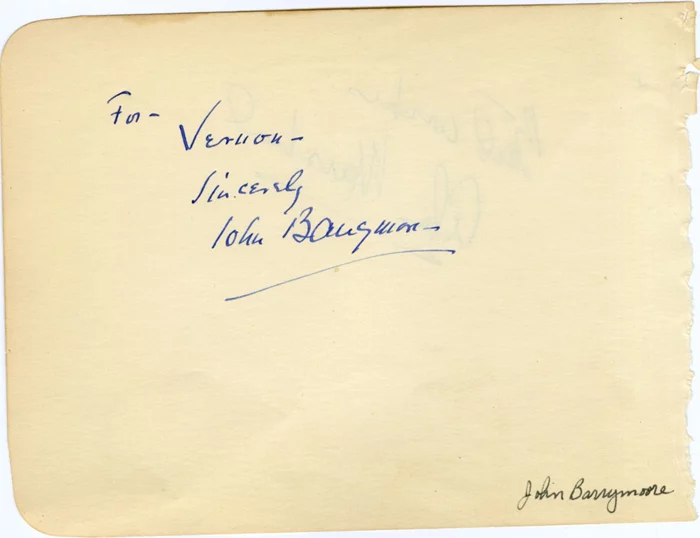 For-
Vernon-
Sincerely
John Barrymore
John Barrymore